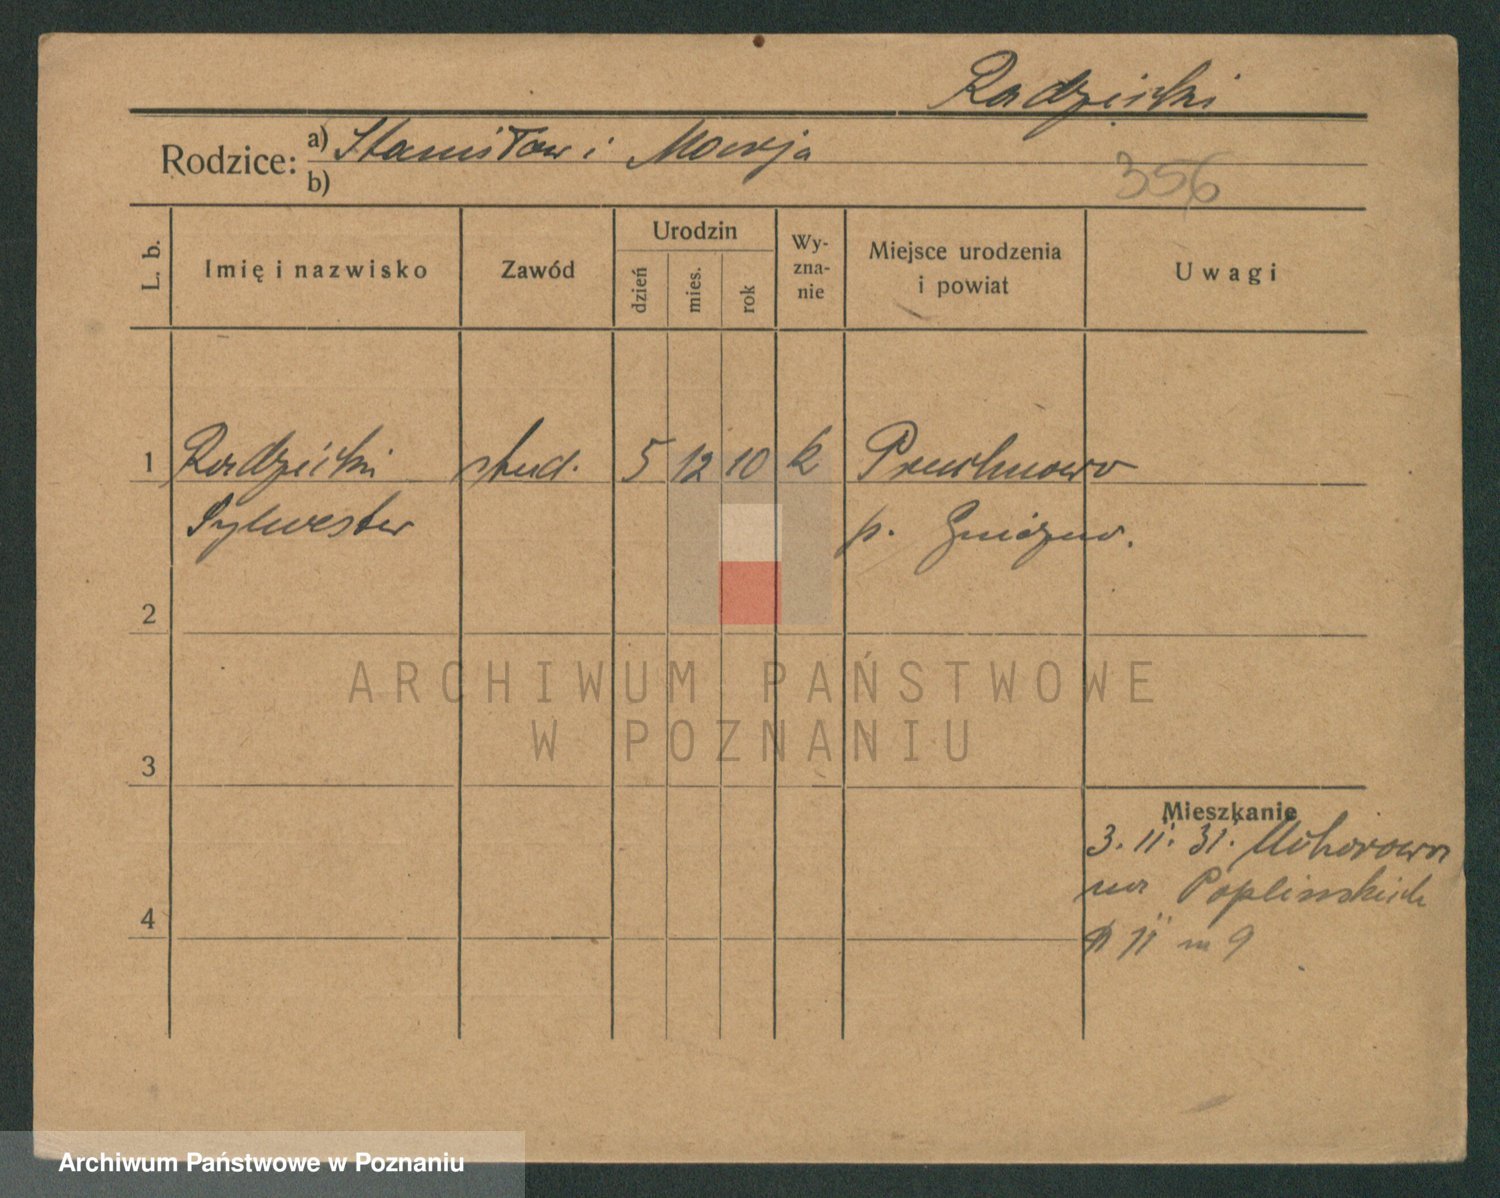 Radzicki
Rodzice: a) Stanisław i Marja
b)
356
L. b.
Imię i nazwisko
Zawód
Urodzin
dzień
mies.
rok
Wy-
zna-
nie
Miejsce urodzenia
i powiat
Uwagi
1 Radzicki stud. 5 12 10 k
Sylwester p. Gniezno.
2
ARCHIWUM PAŃSTWOWE
W POZNANIU
3
Mieszkanie
3. 11. 31.
na Poplinskich
4
11 m 9
Archiwum Państwowe w Poznaniu